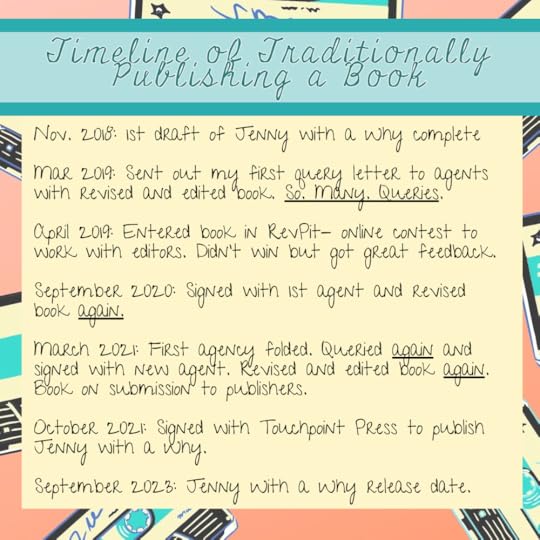 Timeline of Traditionally
Publishing a Book
Nov. 2018: 1st draft of Jenny with a Why complete
Mar 2019: Sent out my first query letter to agents
with revised and edited book. So. Many. Queries.
April 2019: Entered book in RevPit- online contest to
work with editors. Didn't win but got great feedback.
September 2020: Signed with 1st agent and revised
book again.
March 2021: First agency folded. Queried again and
signed with new agent. Revised and edited book again.
Book on submission to publishers.
October 2021: Signed with Touchpoint Press to publish
Jenny with a Why.
September 2023: Jenny With a Why release date.